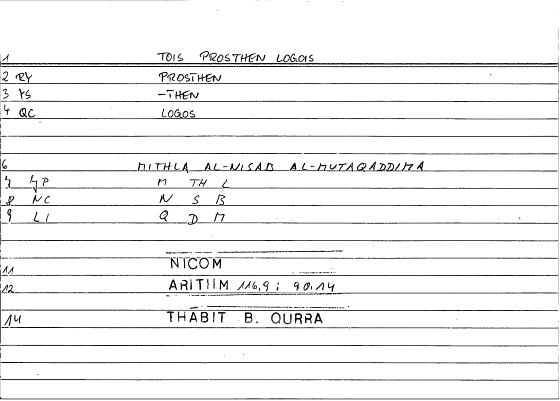 1 TOIS PROSTHEN LOGOIS
2 RY PROSTHEN
3 YS -THEN
4 QC LOGOS
6 MITHLA AL-NISAB AL-MUTAQADDIMA
7 YP M TH L
8 NC N S B
9 LI Q D M
11 NICOM
12 ARITIIM 116,9; 90,14
14 THABIT B. QURRA